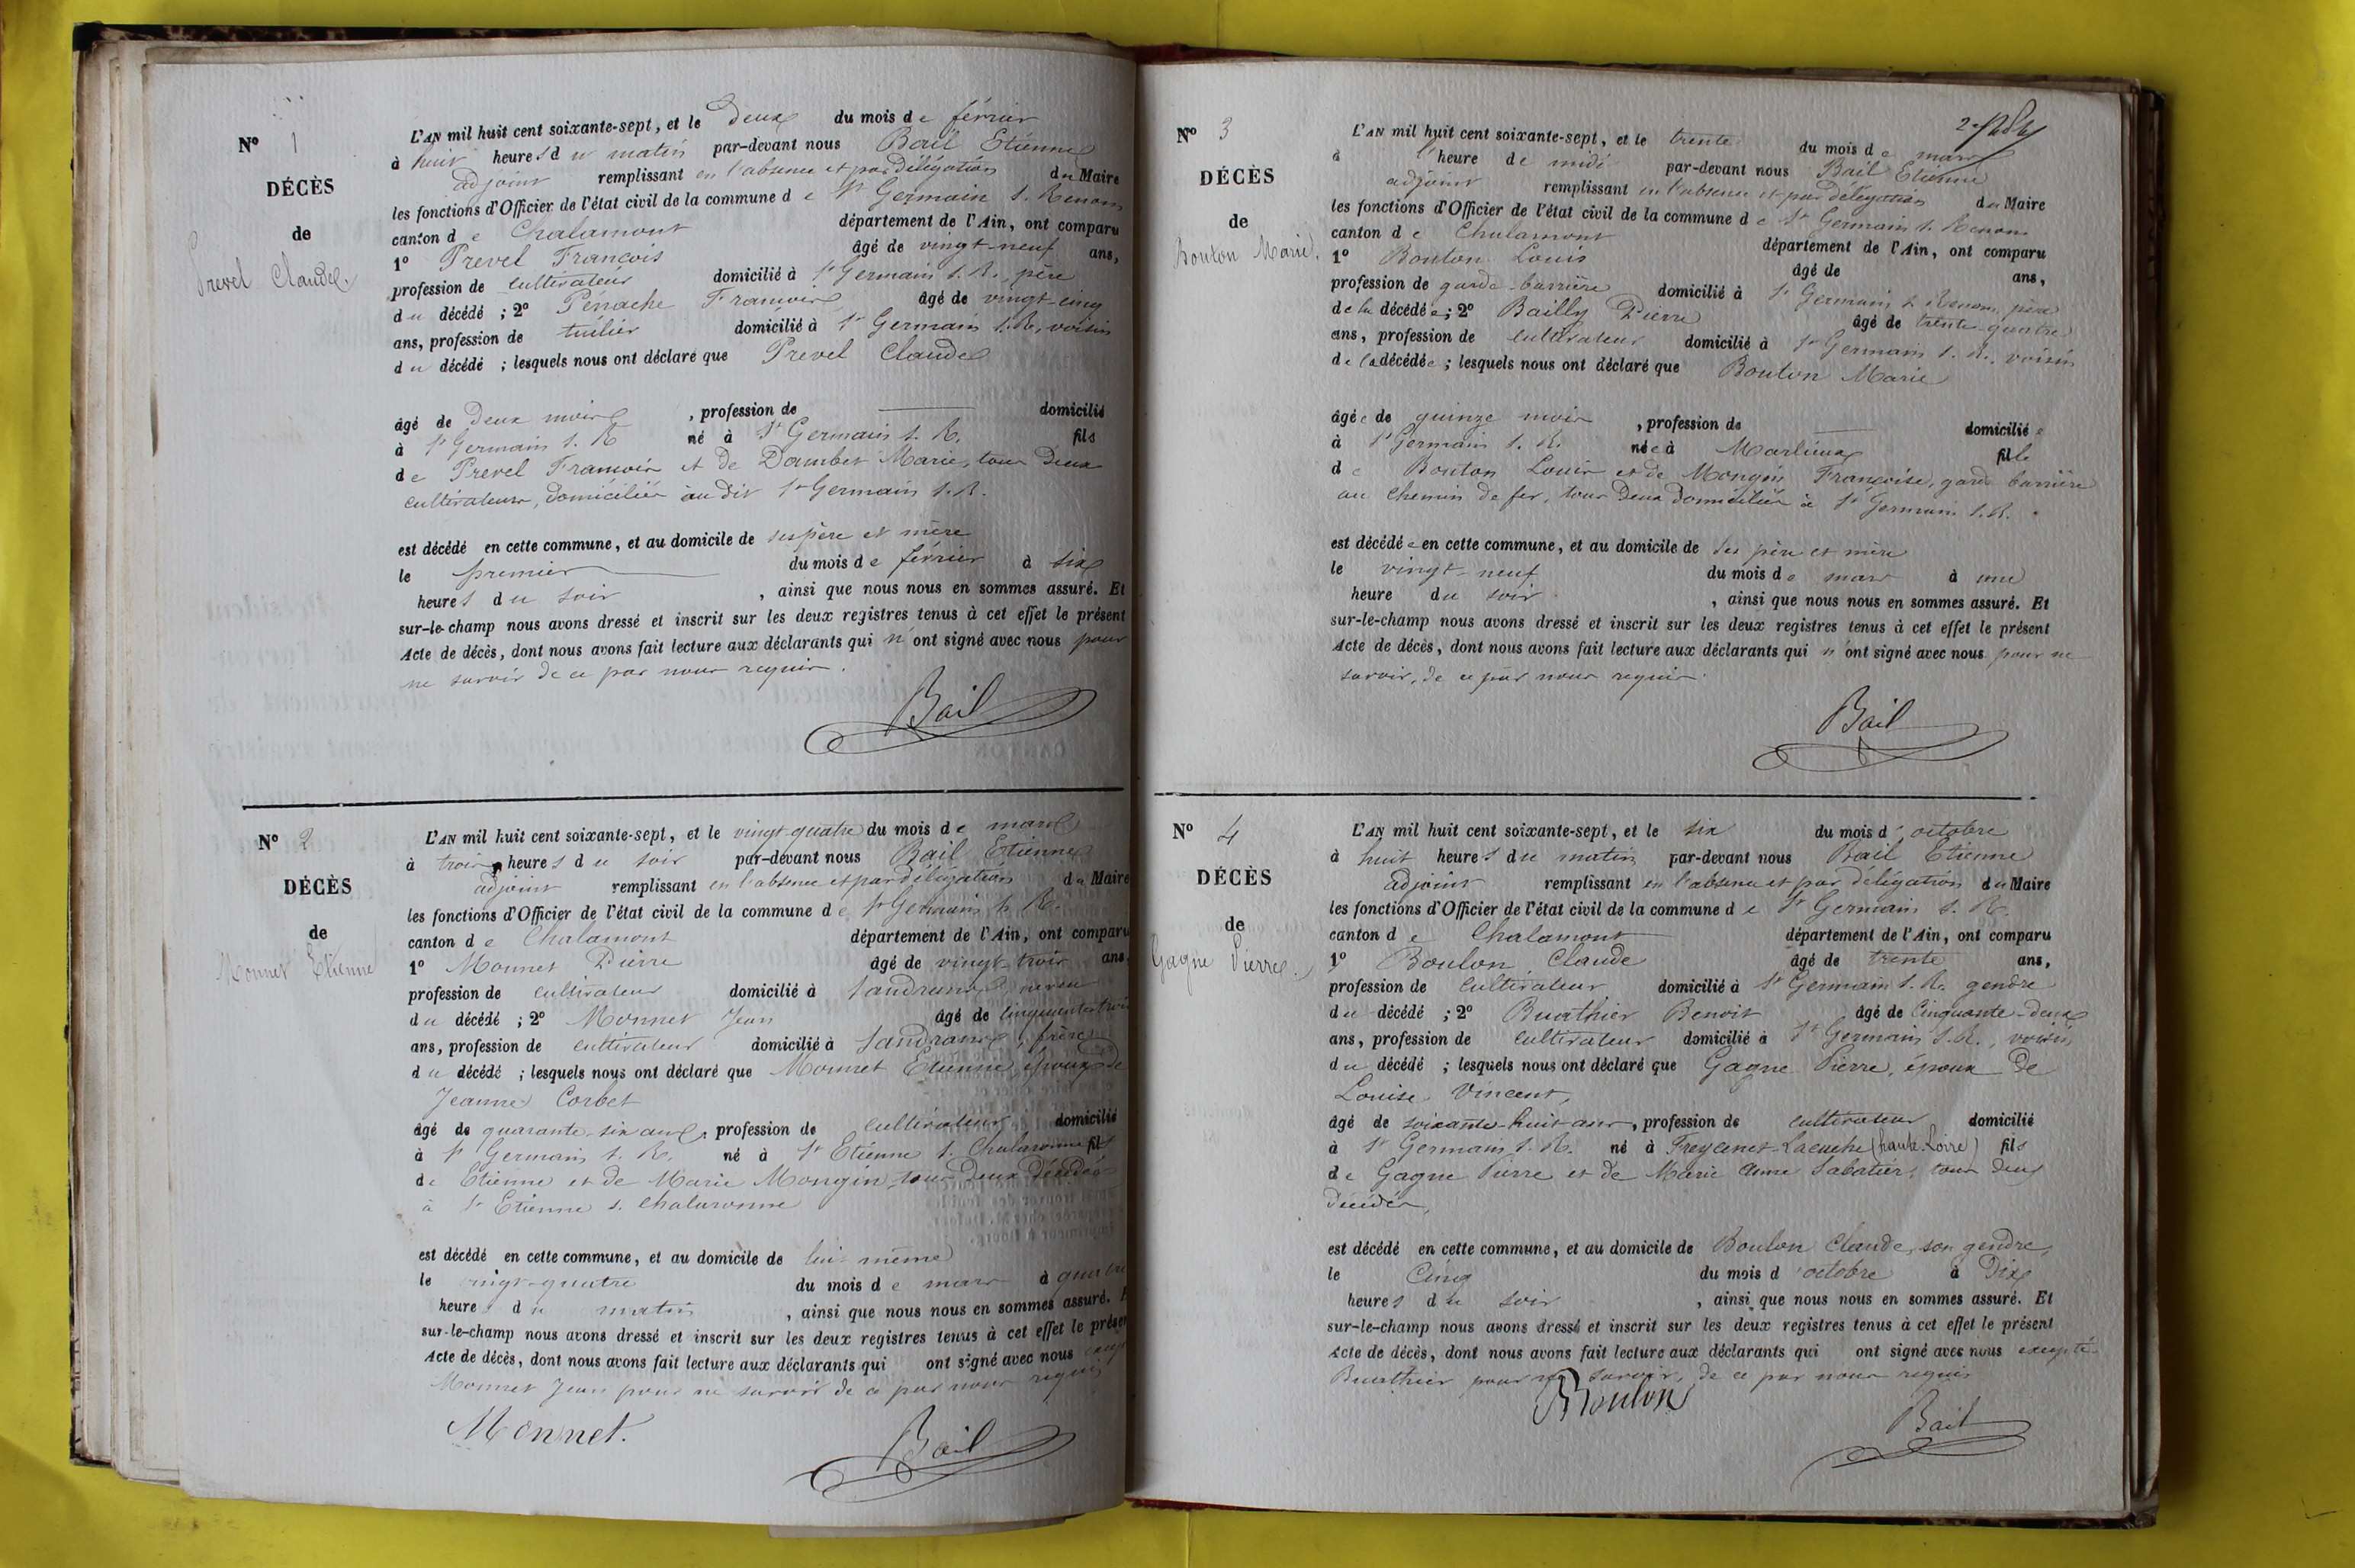 N° 1
DÉCÈS
de
Prevel Claude.
L'AN mil huit cent soixante-sept, et le deux du mois de février
à huit heures du matin par-devant nous Bail Etienne
adjoint remplissant en l'absence et par délégation du Maire
les fonctions d'Officier de l'état civil de la commune de St Germain s. Renom
canton de Chalamont département de l'Ain, ont comparu
1° Prevel François âgé de vingt-neuf ans,
profession de cultivateur domicilié à St Germain s. R., père
du décédé ; 2° Penache François âgé de vingt-cinq
ans, profession de tuilier domicilié à St Germain s. R., voisin
du décédé ; lesquels nous ont déclaré que Prevel Claude
âgé de deux mois , profession de domicilié
à St Germain s. R né à St Germain s. R. fils
de Prevel François et de Dambet Marie, tous deux
cultivateurs, domiciliés audit St Germain s. R.
est décédé en cette commune, et au domicile de ses père et mère
le premier du mois de février à six
heures du soir , ainsi que nous nous en sommes assuré. Et
sur-le-champ nous avons dressé et inscrit sur les deux registres tenus à cet effet le présent
Acte de décès, dont nous avons fait lecture aux déclarants qui n'ont signé avec nous pour
ne savoir de ce par nous requis.
Bail
N° 2
DÉCÈS
de
Monnet Etienne
L'AN mil huit cent soixante-sept, et le vingt-quatre du mois de mars
à trois heures du soir par-devant nous Bail Etienne
adjoint remplissant en l'absence et par délégation du Maire
les fonctions d'Officier de l'état civil de la commune de St Germain s. R.
canton de Chalamont département de l'Ain, ont comparu
1° Monnet Pierre âgé de vingt-trois ans
profession de cultivateur domicilié à Sandrans, neveu
du décédé ; 2° Monnet Jean âgé de cinquante trois
ans, profession de cultivateur domicilié à Sandrans, frère
du décédé ; lesquels nous ont déclaré que Monnet Etienne, époux de
Jeanne Corbet
âgé de quarante-six ans, profession de cultivateur domicilié
à St Germain s. R. né à St Etienne s. Chalaronne fils
de Etienne et de Marie Mongin, tous deux décédés
à St Etienne s. Chalaronne
est décédé en cette commune, et au domicile de lui même
le vingt-quatre du mois de mars à quatre
heures du matin , ainsi que nous nous en sommes assuré.
sur-le-champ nous avons dressé et inscrit sur les deux registres tenus à cet effet le présen
Acte de décès, dont nous avons fait lecture aux déclarants qui ont signé avec nous
Monnet Jean pour ne savoir de ce par nous requis
Monnet. Bail
N° 3
DÉCÈS
de
Bouton Marie.
L'AN mil huit cent soixante-sept, et le trente du mois de mars
à l'heure de midi par-devant nous Bail Etienne
adjoint remplissant en l'absence et par délégation du Maire
les fonctions d'Officier de l'état civil de la commune de St Germain s. Renom
canton de Chalamont département de l'Ain, ont comparu
1° Bouton Louis âgé de ans,
profession de garde-barrière domicilié à St Germain s. Renom, père
de la décédée ; 2° Bailly Pierre âgé de trente-quatre
ans, profession de cultivateur domicilié à St Germain s. R., voisin
de la décédée ; lesquels nous ont déclaré que Bouton Marie
âgée de quinze mois , profession de domicilié
à St Germain s. R. née à Marlieux fille
de Bouton Louis et de Mongin Françoise, garde barrière
au chemin de fer, tous deux domiciliés à St Germain s. R.
est décédée en cette commune, et au domicile de ses père et mère
le vingt-neuf du mois de mars à une
heure du soir , ainsi que nous nous en sommes assuré. Et
sur-le-champ nous avons dressé et inscrit sur les deux registres tenus à cet effet le présent
Acte de décès, dont nous avons fait lecture aux déclarants qui n'ont signé avec nous pour ne
savoir, de ce par nous requis.
Bail
N° 4
DÉCÈS
de
Gagne Pierre.
L'AN mil huit cent soixante-sept, et le six du mois d'octobre
à huit heures du matin par-devant nous Bail Etienne
adjoint remplissant en l'absence et par délégation du Maire
les fonctions d'Officier de l'état civil de la commune de St Germain s. R.
canton de Chalamont département de l'Ain, ont comparu
1° Boulon Claude âgé de trente ans,
profession de cultivateur domicilié à St Germain s. R. gendre
du décédé ; 2° Buathier Benoit âgé de cinquante-deux
ans, profession de cultivateur domicilié à St Germain s. R., voisin
du décédé ; lesquels nous ont déclaré que Gagne Pierre, époux de
Louise Vincent,
âgé de soixante-huit ans, profession de cultivateur domicilié
à St Germain s. R. né à Freycenet-Lacuche (haute-Loire) fils
de Gagne Pierre et de Marie Anne Sabatier, tous deux
décédés,
est décédé en cette commune, et au domicile de Boulon Claude, son gendre,
le cinq du mois d'octobre à dix
heures du soir , ainsi que nous nous en sommes assuré. Et
sur-le-champ nous avons dressé et inscrit sur les deux registres tenus à cet effet le présent
Acte de décès, dont nous avons fait lecture aux déclarants qui ont signé avec nous excepté
Buathier pour ne savoir, de ce par nous requis
Boulon Bail